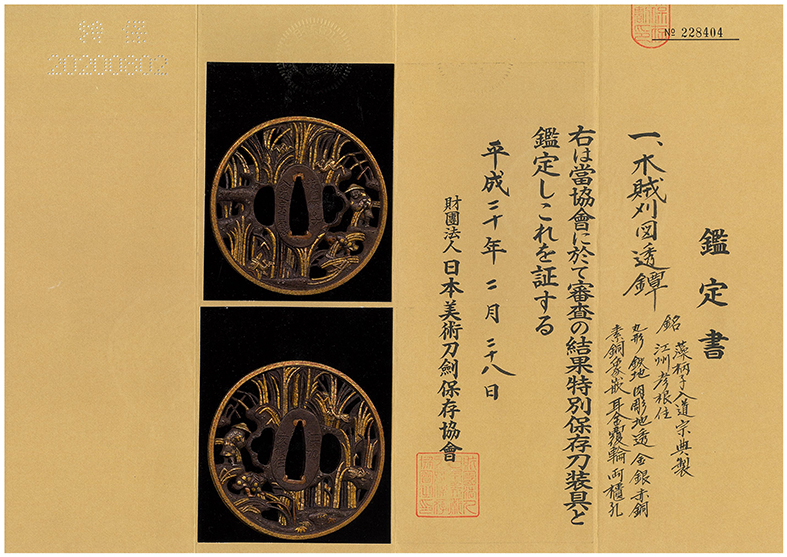 特保
20200802
№ 228404
鑑定書
一、水賊刈図透鐔
銘 藻柄子入道宗典製
江州彦根住
丸形 鉄地 肉彫地透 金銀赤銅
素銅象嵌 耳金覆輪 両櫃孔
右は當協會に於て審査の結果特別保存刀装具と
鑑定しこれを証する
平成二十年二月二十八日
財團法人 日本美術刀劍保存協會